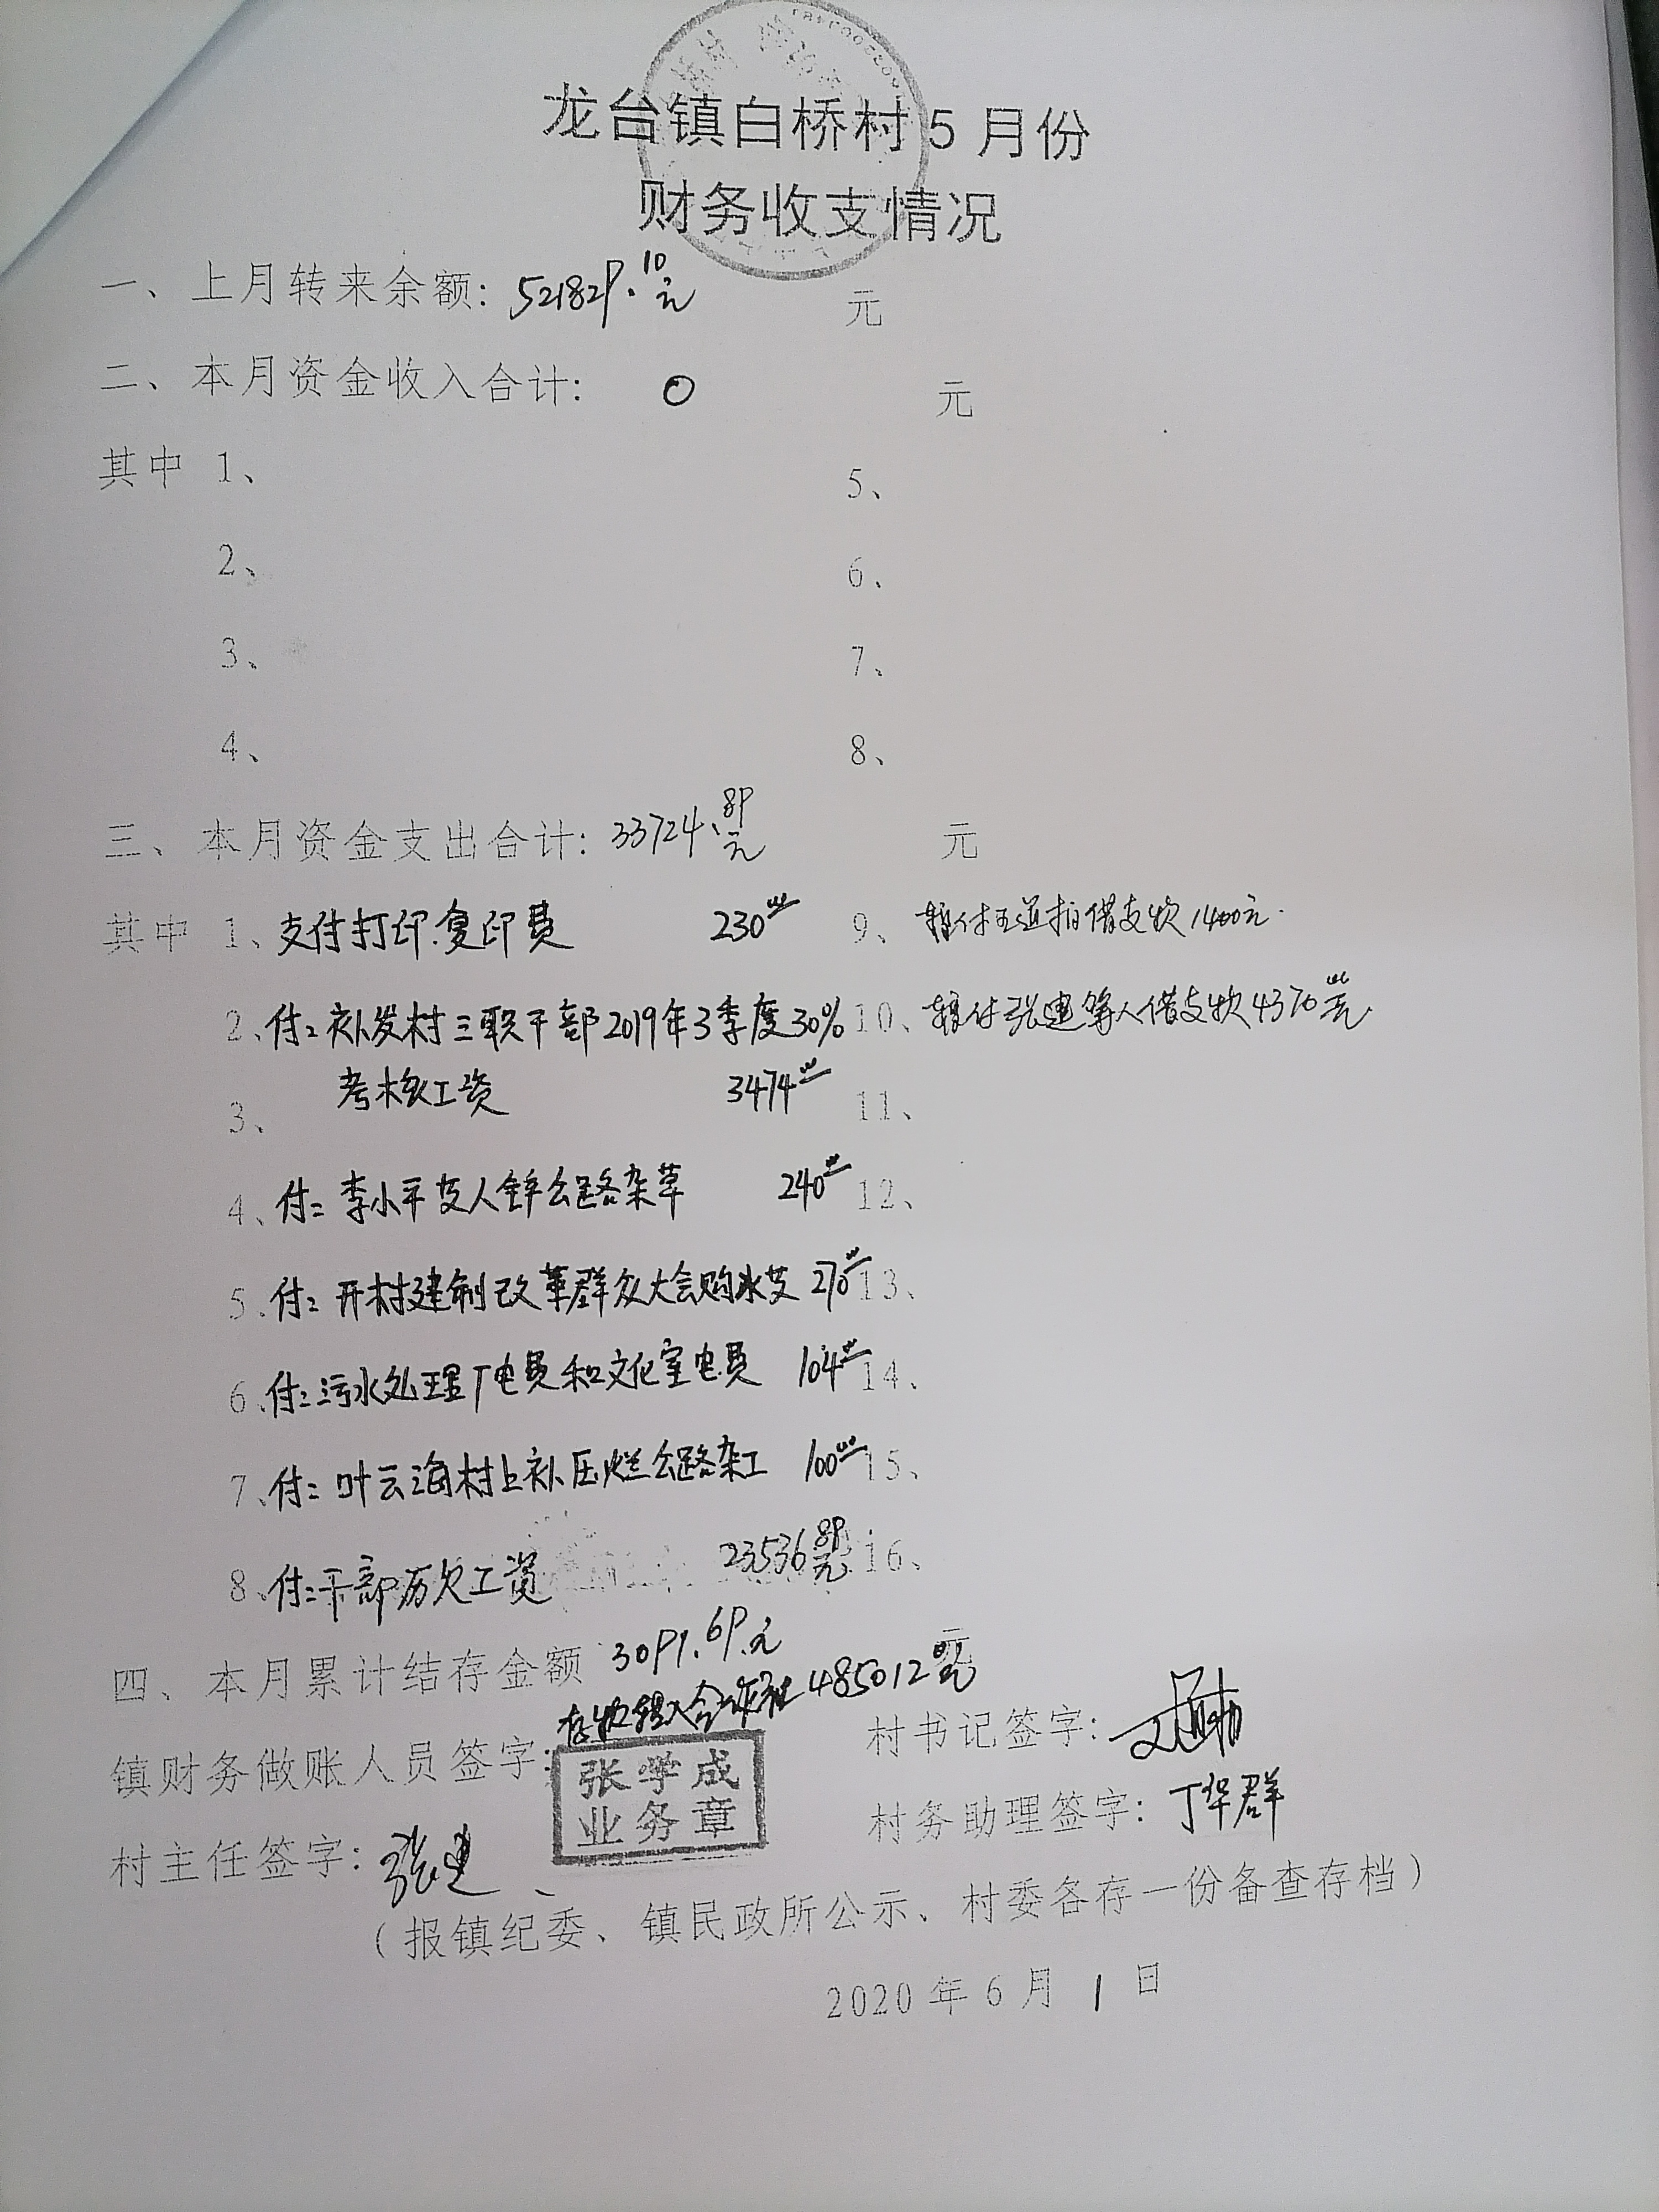 龙台镇白桥村5月份
财务收支情况
一、上月转来余额：521829.10元 元
二、本月资金收入合计： 0 元
其中 1、 5、
2、 6、
3、 7、
4、 8、
三、本月资金支出合计：33724.89元 元
其中 1、支付打印.复印费 230 9、暂付 借支款1400元.
2、付：补发村三职干部2019年3季度30% 10、暂付张建等人借支款4370元
3、 考核工资 3474 11、
4、付：李小平 人锌公路杂草 240 12、
5、付：开村建制改革群众大会购水 270 13、
6、付：污水处理厂电费和文化室电费 104 14、
7、付：叶云海村上补压烂公路杂工 100 15、
8、付：干部历欠工资 23536.89元 16、
四、本月累计结存金额 3091.69.元 元
存款转入合作社485012元
镇财务做账人员签字：张学成 村书记签字：
业务章
村主任签字：张建 村务助理签字：丁华群
（报镇纪委、镇民政所公示、村委各存一份备查存档）
2020年6月1日